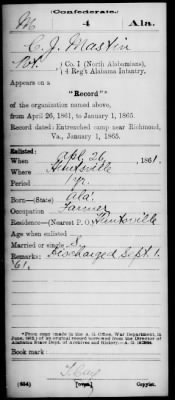 Confederate.
M 4 Ala.
C. J. Mastin
Pvt. , Co. I (North Alabamians),
4 Reg't Alabama Infantry.
Appears on a
"Record"*
of the organization named above,
from April 26, 1861, to January 1, 1865.
Record dated: Entrenched camp near Richmond,
Va., January 1, 1865.
Enlisted:
When Apl. 26, 1861.
Where Huntsville
Period 1 yr.
Born—(State) Ala.
Occupation Farmer
Residence—(Nearest P. O.) Huntsville
Age when enlisted
Married or single S.
Remarks: Discharged Sept. 1.
'61.
*From copy made in the A. G. Office, War Department, in
from an original record borrowed from the Director of
Alabama State Dept. of Archives and History.—A. G.
Book mark:
(654) Copyist.